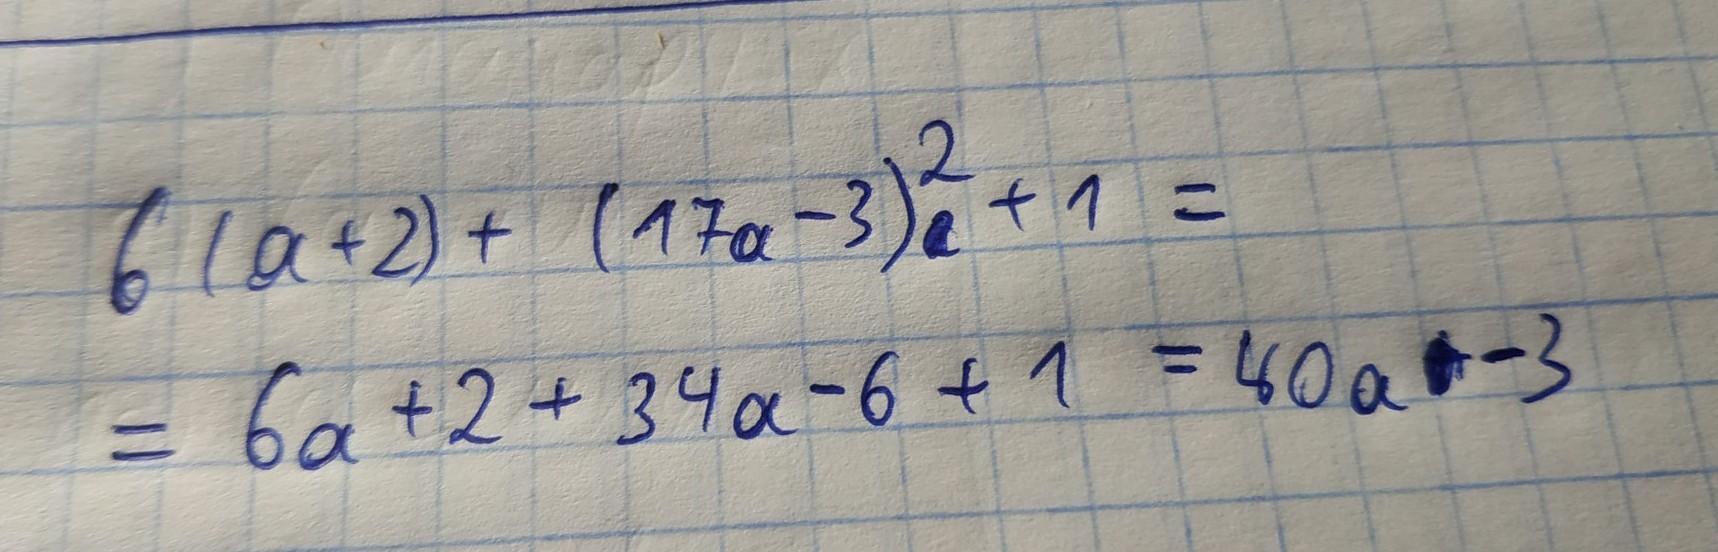 6(a+2)+ (17a-3)²+1 =
= 6a+2+34a-6+1 = 40a-3